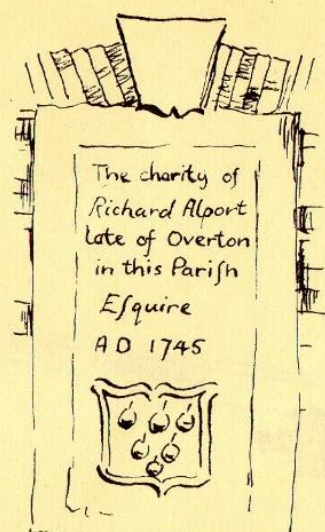 The charity of
Richard Alport
late of Overton
in this Pariſh
Eſquire
A D 1745